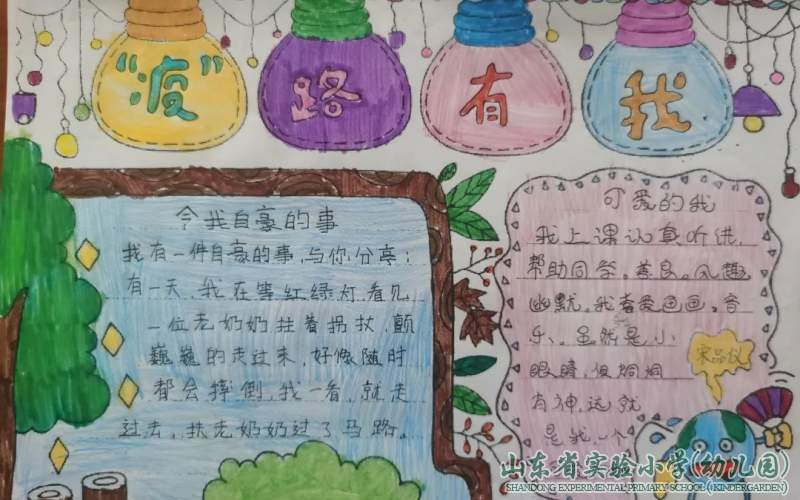 “渡”路有我
令我自豪的事
我有一件自豪的事,与你分享:
有一天,我在等红绿灯,看见
一位老奶奶拄着拐杖,颤
巍巍的走过来,好像随时
都会摔倒,我一看,就走
过去,扶老奶奶过了马路。
可爱的我
我上课认真听讲,
帮助同学。善良。风趣
幽默。我喜爱画画。音
乐。虽然是小
眼睛,但炯炯
有神,这就
是我,一个
宋品仪
山东省实验小学(幼儿园)
SHANDONG EXPERIMENTAL PRIMARY SCHOOL (KINDERGARDEN)